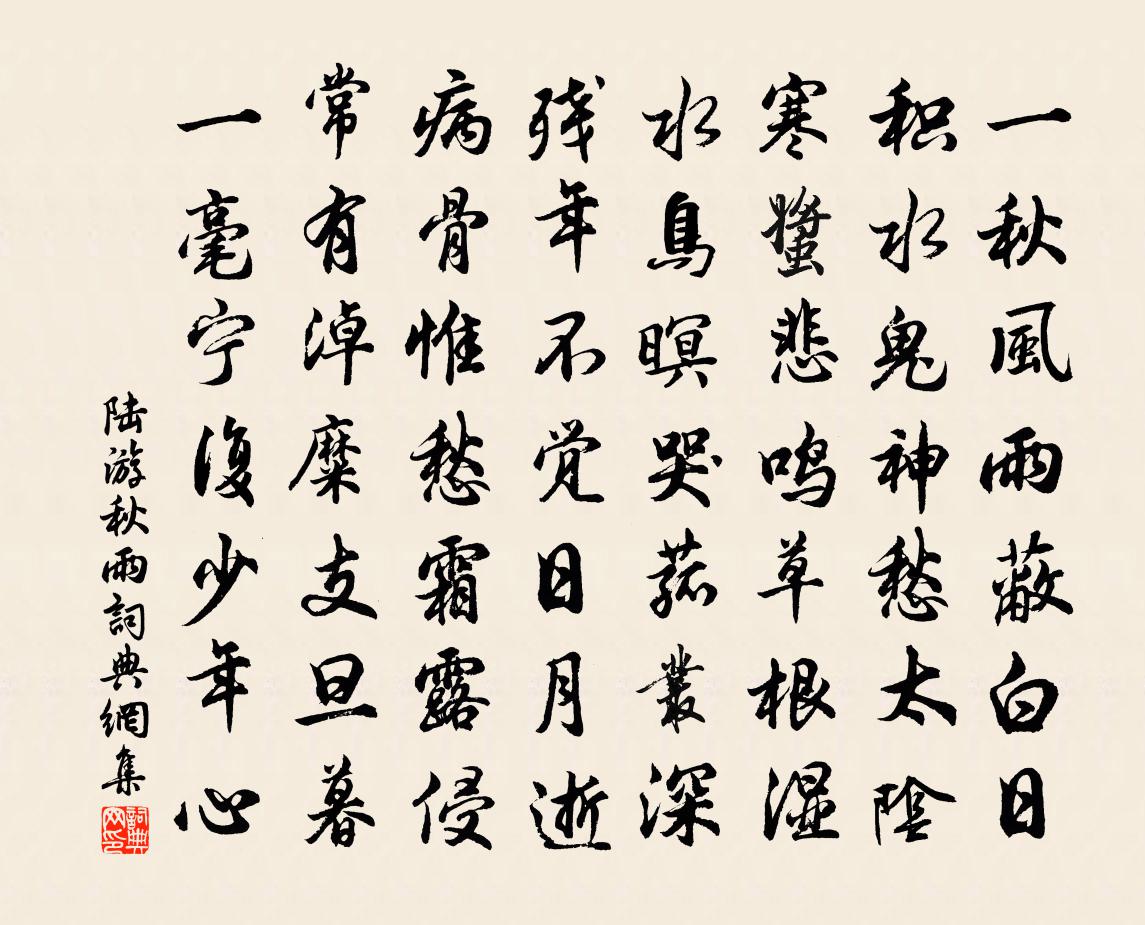 一秋風雨蔽白日
积水鬼神愁太陰
寒螿悲鸣草根湿
水鳥暝哭菰叢深
残年不觉日月逝
病骨惟愁霜露侵
常有淖糜支旦暮
一毫宁復少年心
陆游秋雨詞典網集
詞典網印